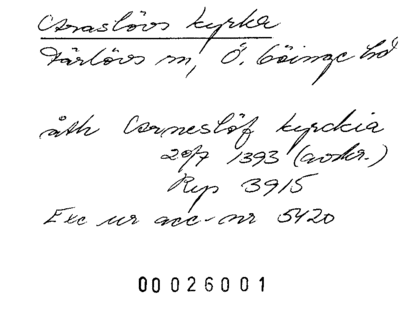 Araslövs kyrka
Färlövs sn, Ö. Göinge hd
åth Arneslöf kyrckia
20/7 1393 (avskr.)
Rep 3915
Exc ur acc-nr 5420
00026001